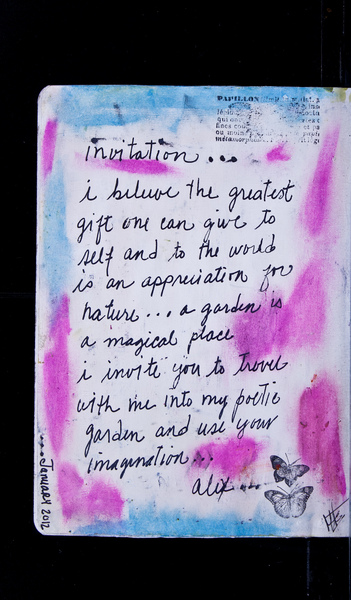 PAPILLON
invitation ...
i believe the greatest
gift one can give to
self and to the world
is an appreciation for
nature ... a garden is
a magical place
i invite you to travel
with me into my poetic
garden and use your
imagination ...
alix ...
.... January 2012